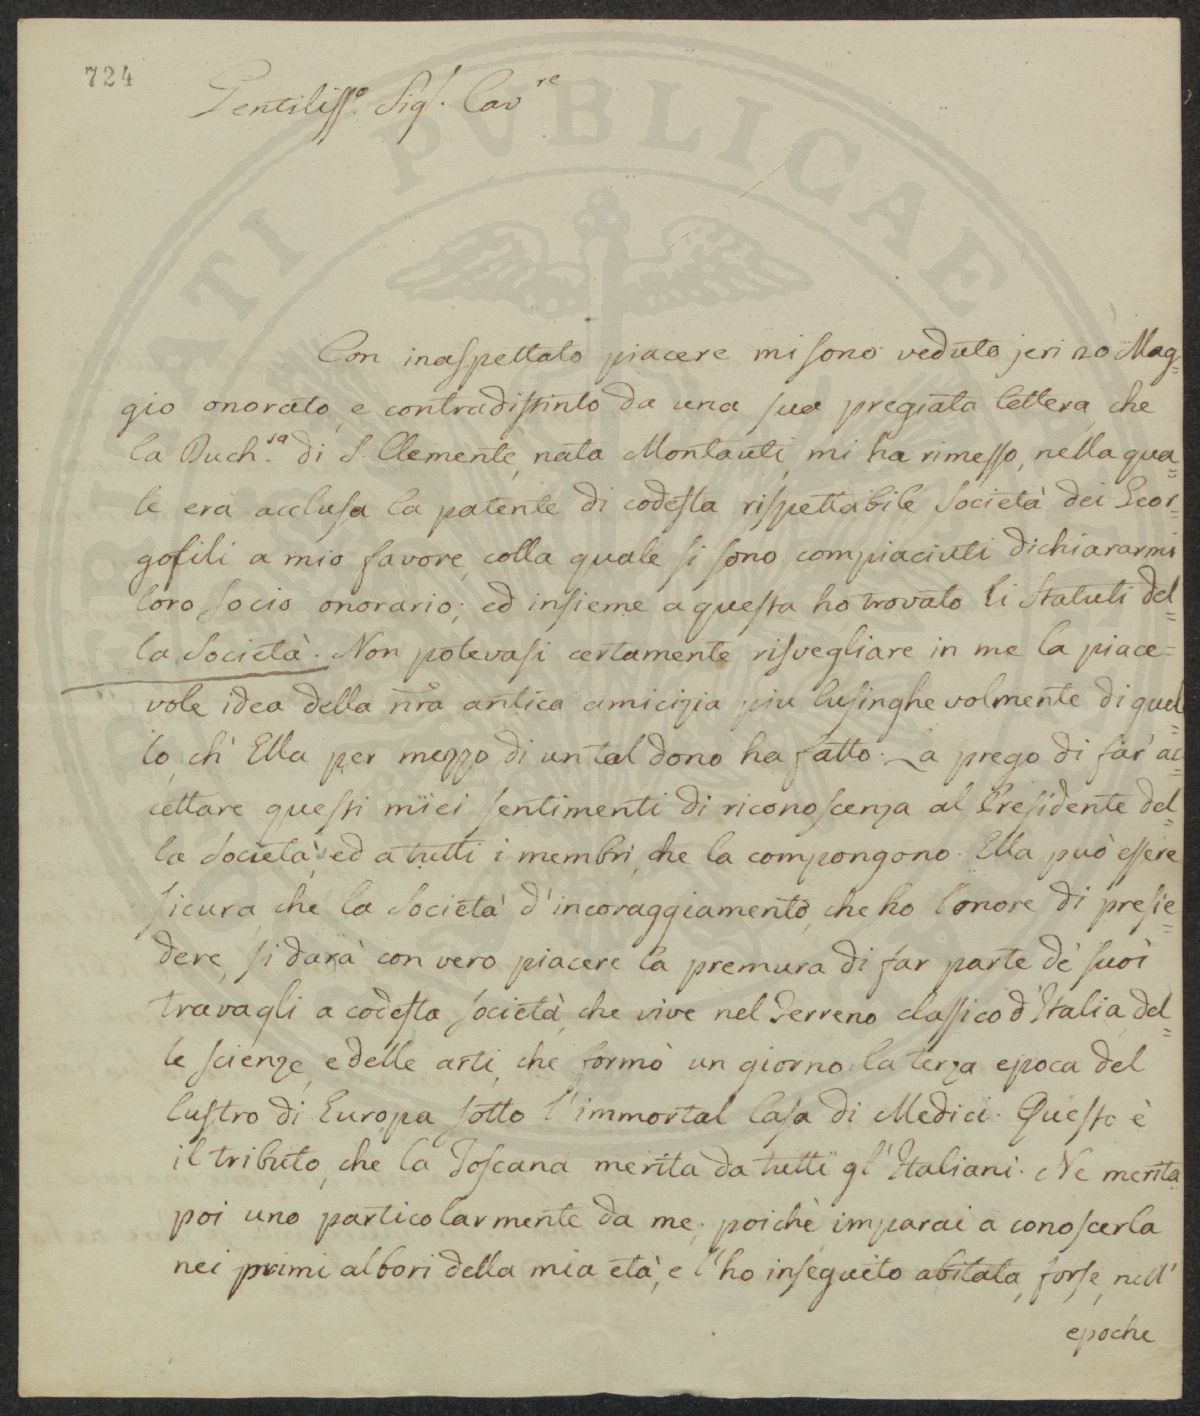 724
Gentiliss.o Sigr. Cav.re
Con inaspettato piacere mi sono veduto jeri 20 Mag=
gio onorato, e contradistinto da una sua pregiata lettera, che
la Duch.sa di S. Clemente, nata Montauti, mi ha rimesso, nella qua=
le era acclusa la patente di codesta rispettabile Società dei Geor=
gofili a mio favore, colla quale si sono compiaciuti dichiararmi
loro socio onorario; ed insieme a questa ho trovato li Statuti del=
la Società. Non potevasi certamente risvegliare in me la piace=
vole idea della nr̃a antica amicizia piu lusinghevolmente di quel=
lo, ch' Ella per mezzo di un tal dono ha fatto. La prego di far' ac=
cettare questi miei sentimenti di riconoscenza al Presidente del=
la Società, ed a tutti i membri, che la compongono. Ella può essere
sicura, che la Società d'incoraggiamento, che ho l'onore di presie=
dere, si darà con vero piacere la premura di far parte de' suoi
travagli a codesta società, che vive nel Terreno classico d'Italia, del=
le scienze, e delle arti, che formò un giorno la terza epoca del
lustro di Europa sotto l'immortal Casa di Medici. Questo è
il tributo, che la Toscana merita da tutti gl'Italiani. Ne merita
poi uno particolarmente da me, poichè imparai a conoscerla
nei primi albori della mia età, e l'ho inseguito abitata, forse, nell'
epoche
PUBLICAE